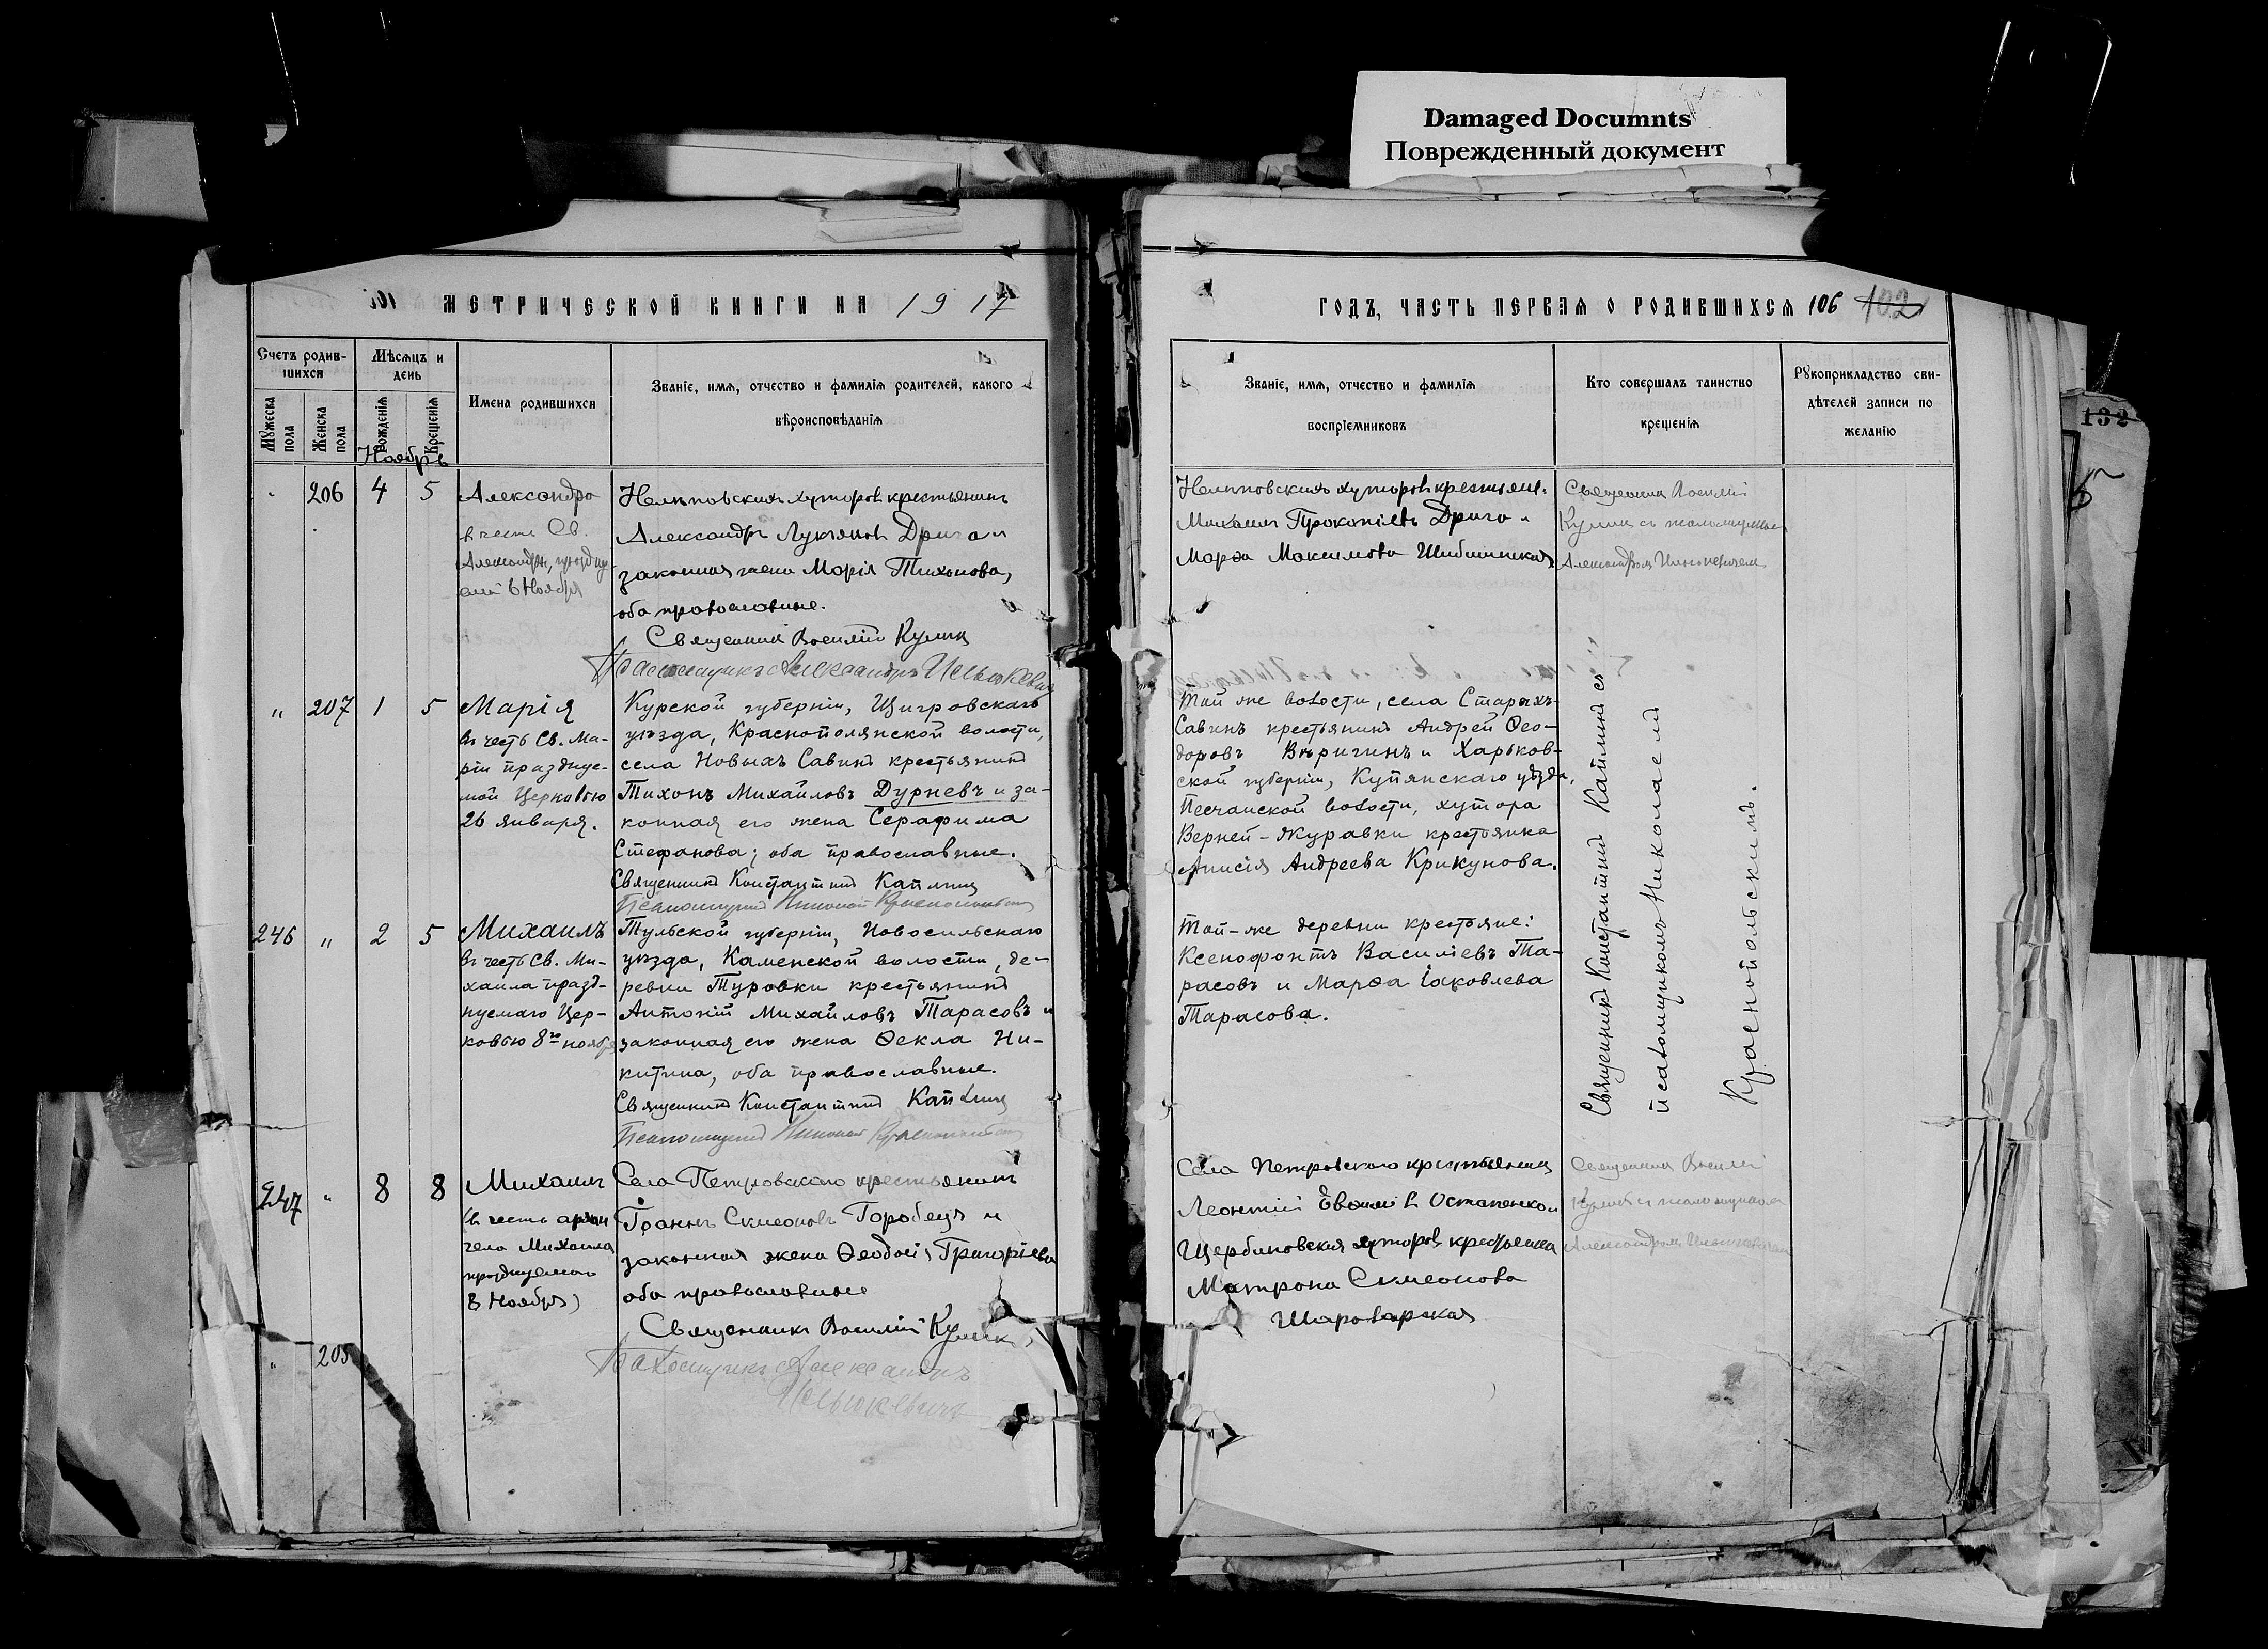 Damaged Documnts
Поврежденный документ
МЕТРИЧЕСКОЙ КНИГИ НА 1917
Счетъ родив-
шихся
Мѣсяцъ и
день
Имена родившихся
Званіе, имя, отчество и фамилія родителей, какого
вѣроисповѣданія
Мужеска
пола
Женска
пола
Рожденія
Крещенія
Ноябрь
206 4 5 Александра
въ честь Св.
Александры, праздну-
6 Ноября
хуторовъ крестьянинъ
Александръ Лукьяновъ Дрига и
законная жена Марія Тихонова,
оба православные.
Священникъ Василій Кулик
Псаломщикъ Александръ
" 207 1 5 Марія
въ честь Св. Ма-
ріи празднуе-
мой Церковью
26 января.
Курской губерніи, Щигровскаго
уѣзда, Краснополянской волости,
села Новыхъ Савинъ крестьянинъ
Тихонъ Михайловъ Дурневъ и за-
конная его жена Серафима
Стефанова; оба православные.
Священникъ Константинъ Каплинъ
Псаломщикъ Николай Краснопольскій
246 " 2 5 Михаилъ
въ честь Св. Ми-
хаила празд-
нуемаго Цер-
ковью 8го ноября
Тульской губерніи, Новосильскаго
уѣзда, Каменской волости, де-
ревни Туровки крестьянинъ
Антоній Михайловъ Тарасовъ и
законная его жена Ѳекла Ни-
китина, оба православные.
Священникъ Константинъ Каплинъ
Псаломщикъ Николай Краснопольскій
247 " 8 8 Михаилъ
(въ честь архан
гела Михаила
празднуемаго
8 Ноября)
Села Петровскаго крестьянинъ
Іоаннъ Симеоновъ Горобецъ и
законная жена Ѳеодосія Григоріева
оба православные
Священникъ Василій Кулик
Псаломщикъ Александръ
" 205
ГОДЪ, ЧАСТЬ ПЕРВАЯ О РОДИВШИХСЯ 106 102
Званіе, имя, отчество и фамилія
воспріемниковъ
Кто совершалъ таинство
крещенія
Рукоприкладство сви-
дѣтелей записи по
желанію
132
хуторовъ крестьяне:
Михаилъ Прокопіевъ Дрига и
Марѳа Максимова
Священникъ Василій
Кулик съ псаломщикомъ
Александромъ
Той же волости, села Старыхъ-
Савинъ крестьянинъ Андрей Ѳео-
доровъ Веригинъ и Харьков-
ской губерніи, Купянскаго уѣзда,
Песчанской волости, хутора
Верхней-Журавки крестьянка
Анисія Андреева Крикунова.
Той-же деревни крестьяне:
Ксенофонтъ Василіевъ Та-
расовъ и Марѳа Іаковлева
Тарасова.
Священникъ Константинъ Каплинъ съ
псаломщикомъ Николаемъ
Краснопольскимъ.
Села Петровскаго крестьянинъ
Леонтій Остапенко и
Щербиновскихъ хуторовъ крестьянка
Матрона Симеонова
Шароварская
Священникъ Василій
Кулик съ псаломщикомъ
Александромъ